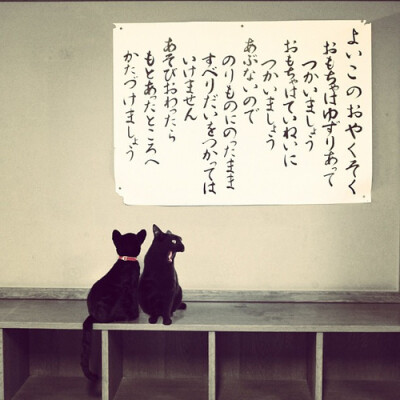 よいこのおやくそく
おもちゃはゆずりあって
つかいましょう
おもちゃはていねいに
つかいましょう
あぶないので
のりものにのったまま
すべりだいをつかっては
いけません
あそびおわったら
もとあったところへ
かたづけましょう